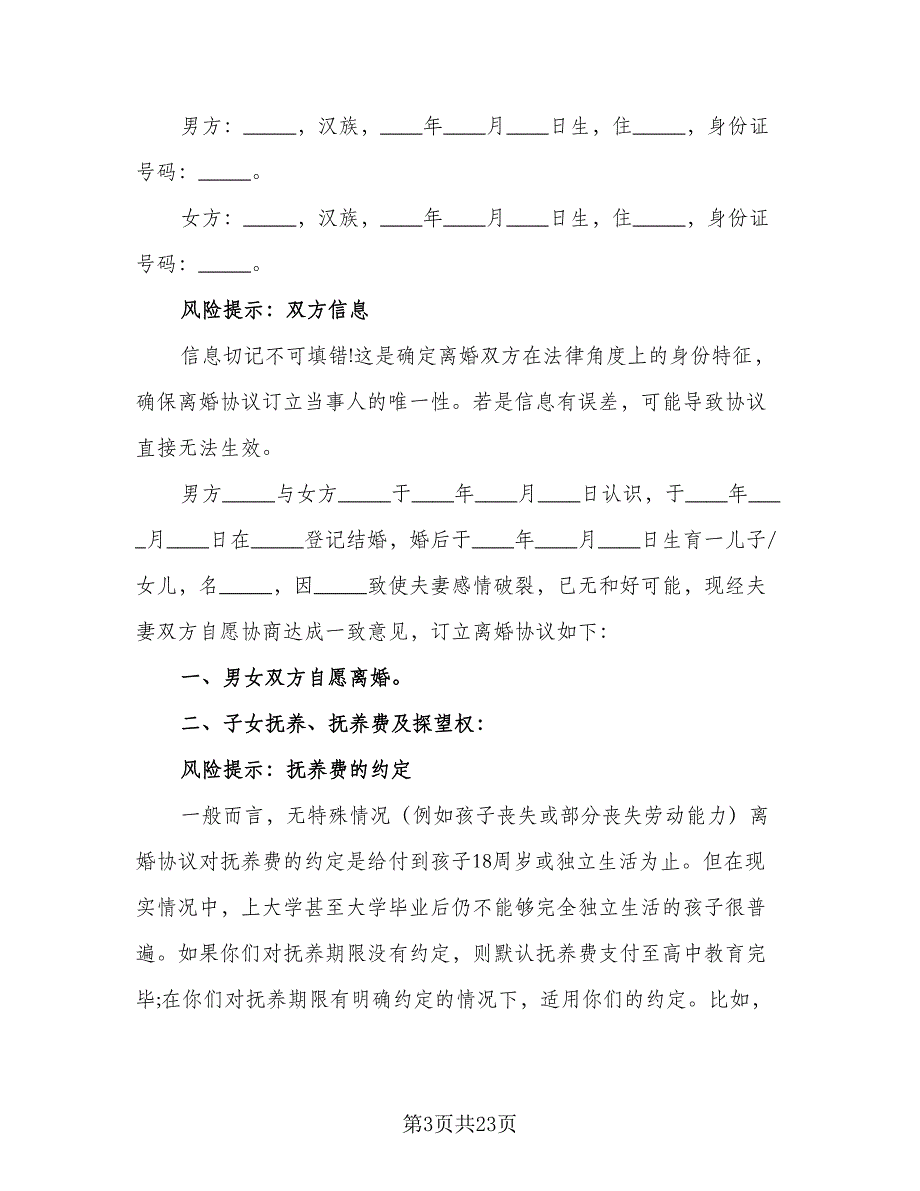 男方：_____，汉族，____年____月____日生，住_____，身份证
号码：_____。
女方：_____，汉族，____年____月____日生，住_____，身份证
号码：_____。
风险提示：双方信息
信息切记不可填错!这是确定离婚双方在法律角度上的身份特征，
确保离婚协议订立当事人的唯一性。若是信息有误差，可能导致协议
直接无法生效。
男方_____与女方_____于____年____月____日认识，于____年___
_月____日在_____登记结婚，婚后于____年____月____日生育一儿子/
女儿，名_____，因_____致使夫妻感情破裂，已无和好可能，现经夫
妻双方自愿协商达成一致意见，订立离婚协议如下：
一、男女双方自愿离婚。
二、子女抚养、抚养费及探望权：
风险提示：抚养费的约定
一般而言，无特殊情况（例如孩子丧失或部分丧失劳动能力）离
婚协议对抚养费的约定是给付到孩子18周岁或独立生活为止。但在现
实情况中，上大学甚至大学毕业后仍不能够完全独立生活的孩子很普
遍。如果你们对抚养期限没有约定，则默认抚养费支付至高中教育完
毕;在你们对抚养期限有明确约定的情况下，适用你们的约定。比如，
第3页共23页